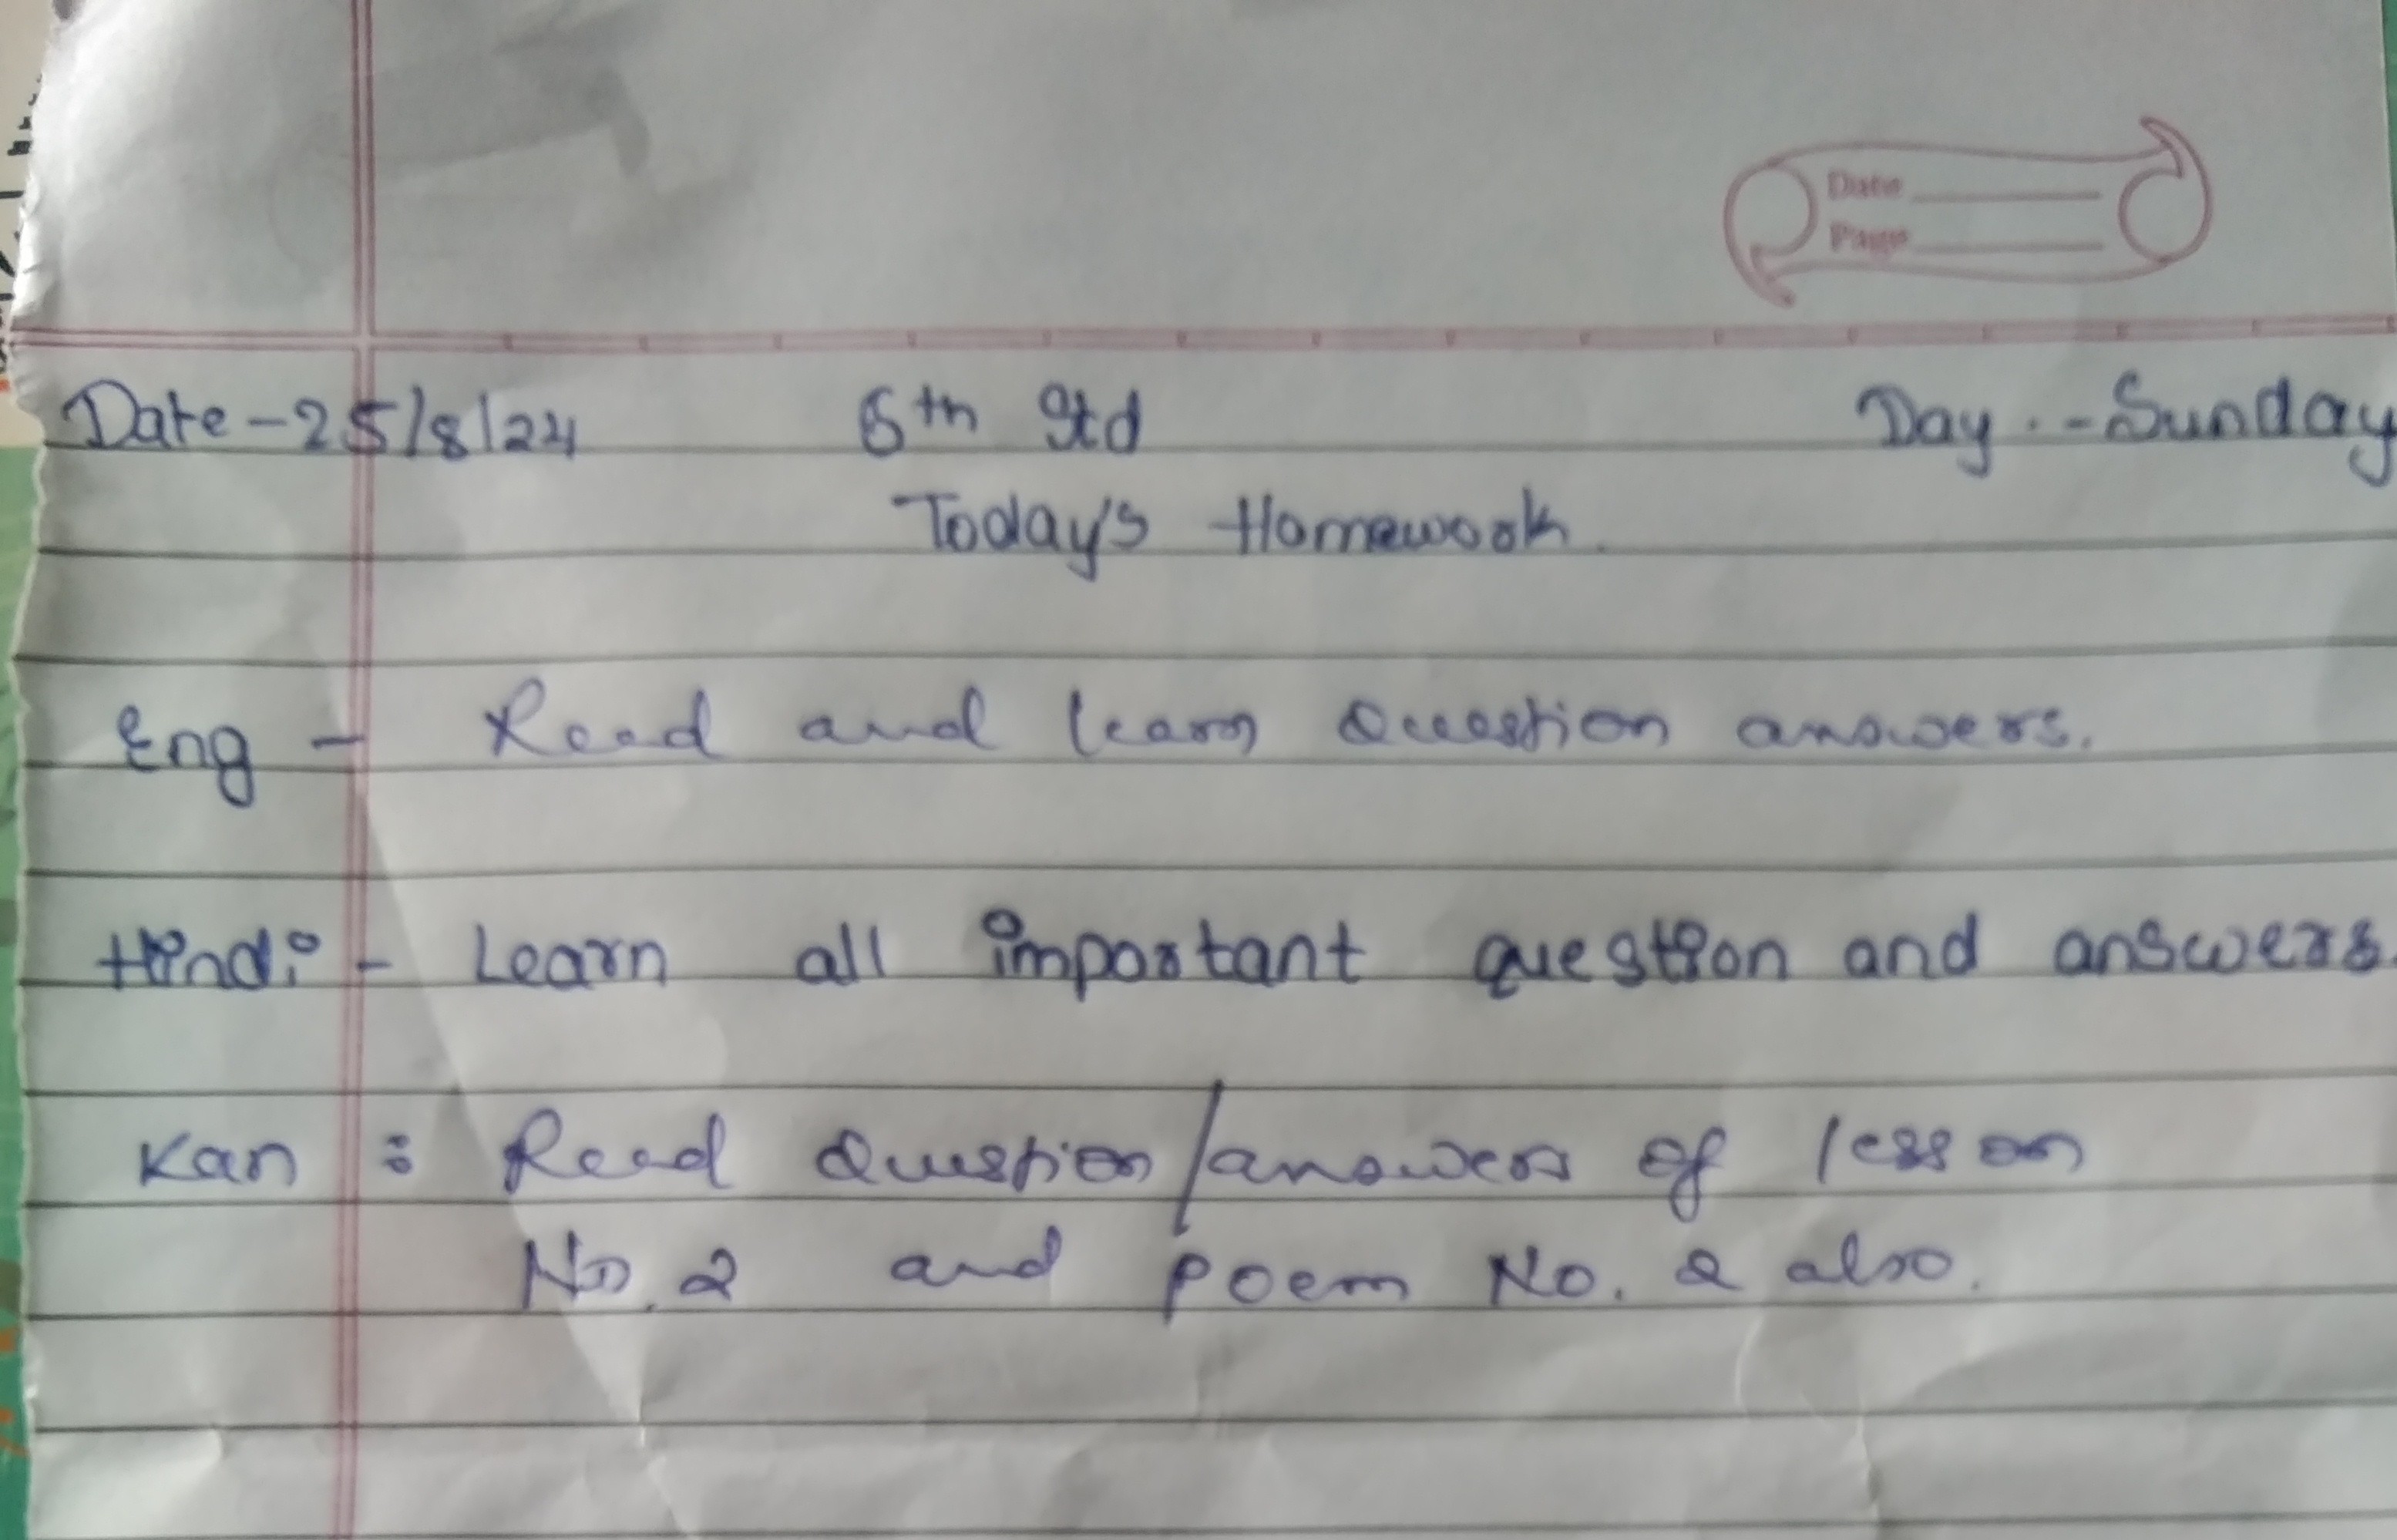 Date
Page
Date - 25/8/24 6th Std Day :- Sunday
Today's Homework.
Eng - Read and learn Question answers.
Hindi - Learn all important question and answers.
Kan : Read Question/answers of lesson
No. 2 and poem No. 2 also.